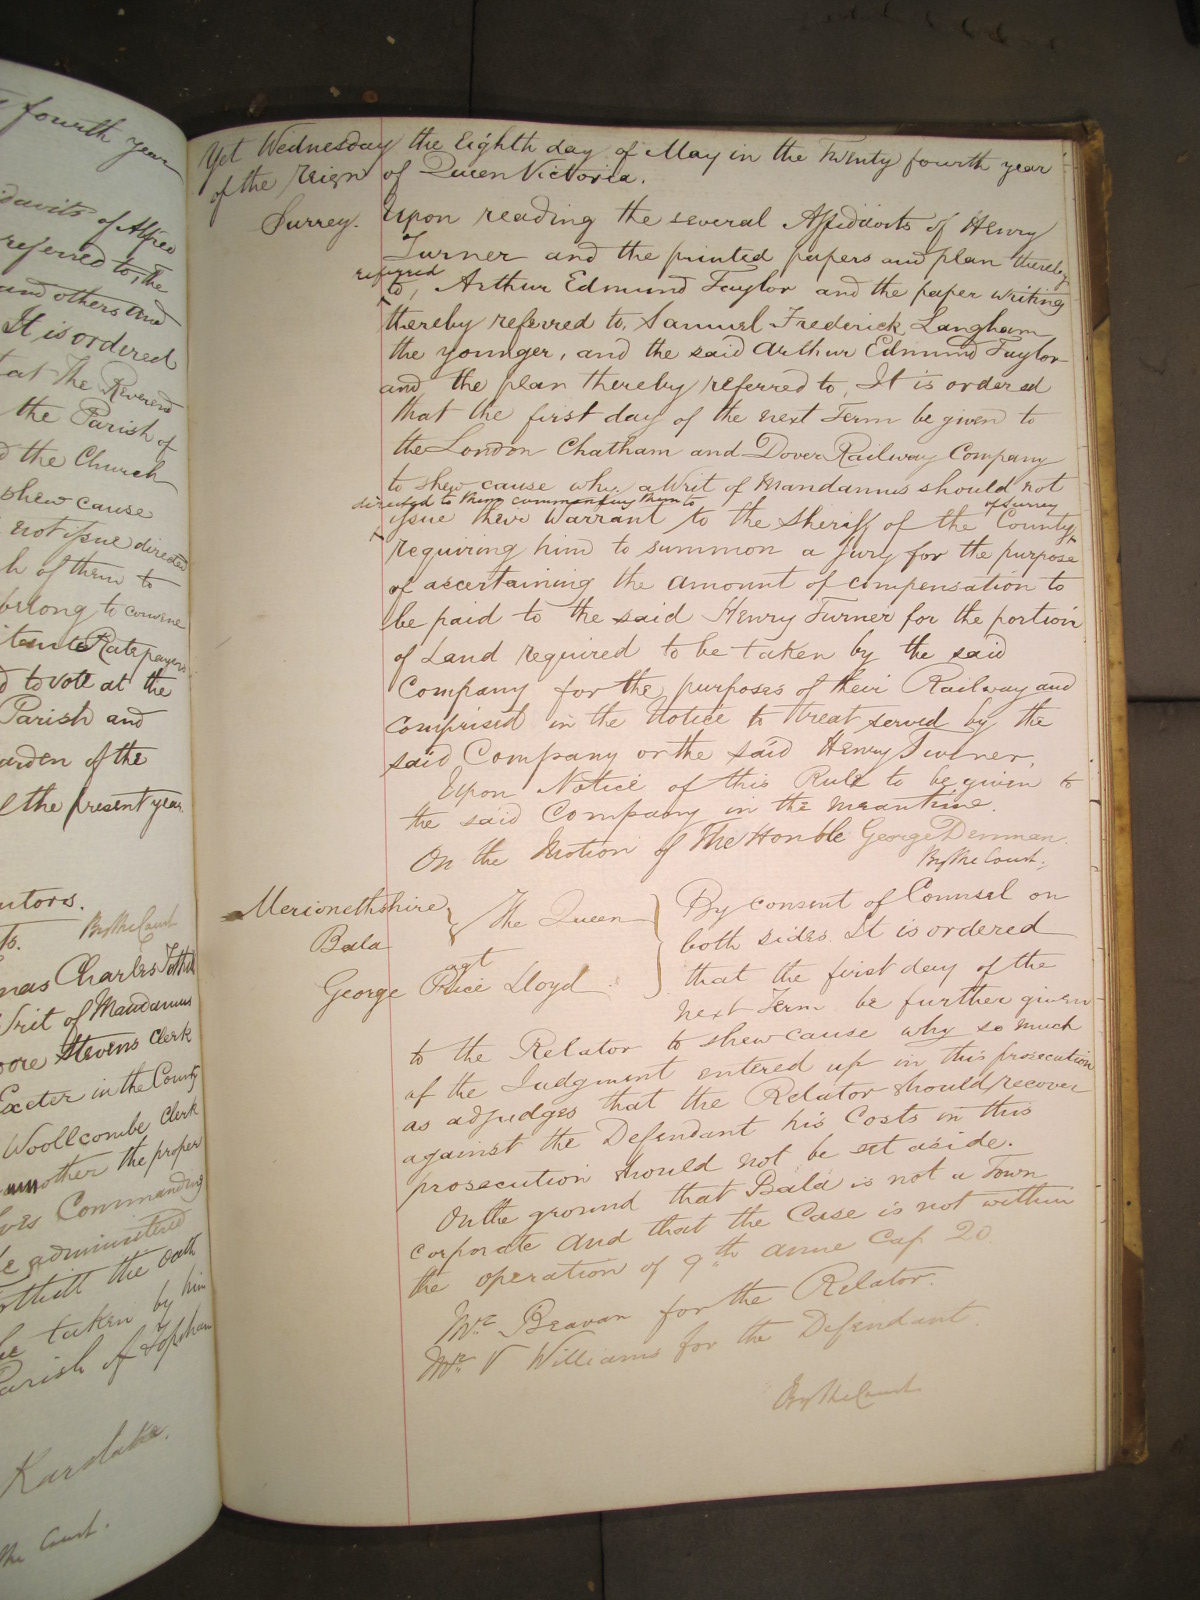 fourth year
idavits of Alfred
referred to, the
and others and
It is ordered
at The Reverend
the Parish of
d the Church
shew cause
not issue directed
h of them to
belong to convene
Ratepayers
d to vote at the
Parish and
arden of the
the present year
utors.
By the Court
mas Charles
Writ of Mandamus
oore Stevens Clerk
Exeter in the County
Woollcombe Clerk
another the proper
Commanding
be administered
the Oath
be taken by him
Parish of Topsham
Karslake.
the Court.
Yet Wednesday the Eighth day of May in the Twenty fourth year
of the reign of Queen Victoria.
Surrey. Upon reading the several Affidavits of Henry
Turner and the printed papers and plan thereby
referred
to, Arthur Edmund Taylor and the paper writing
thereby referred to, Samuel Frederick Langham
the younger, and the said Arthur Edmund Taylor
and the plan thereby referred to, It is ordered
that the first day of the next Term be given to
the London Chatham and Dover Railway Company
to shew cause why a Writ of Mandamus should not
directed to them commanding them to of Surrey
issue their Warrant to the Sheriff of the County
requiring him to summon a jury for the purpose
of ascertaining the amount of compensation to
be paid to the said Henry Turner for the portion
of Land required to be taken by the said
Company for the purposes of their Railway and
comprised in the Notice to treat served by the
said Company on the said Henry Turner.
Upon Notice of this Rule to be given to
the said Company in the meantime.
On the Motion of The Honble George Denman.
By the Court.
Merionethshire
Bala
The Queen
agt
George Price Lloyd
By consent of Counsel on
both sides It is ordered
that the first day of the
next Term be further given
to the Relator to shew cause why so much
of the Judgment entered up in this prosecution
as adjudges that the Relator should recover
against the Defendant his Costs in this
prosecution should not be set aside.
On the ground that Bala is not a Town
corporate and that the Case is not within
the operation of 9th Anne Cap 20
Mr. Beavan for the Relator.
Mr. V Williams for the Defendant.
By the Court